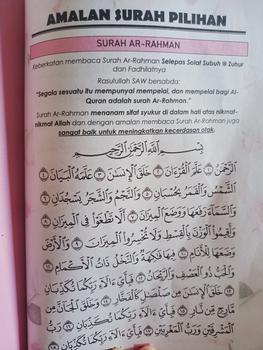 AMALAN SURAH PILIHAN
SURAH AR-RAHMAN
Keberkatan membaca Surah Ar-Rahman Selepas Solat Subuh @ Zuhur
dan Fadhilatnya
Rasulullah SAW bersabda:
"Segala sesuatu itu mempunyai mempelai, dan mempelai bagi Al-
Quran adalah surah Ar-Rahman."
Surah Ar-Rahman menanam sifat syukur di dalam hati atas nikmat-
nikmat Allah dan dengan amalan membaca Surah Ar-Rahman juga
sangat baik untuk meningkatkan kecerdasan otak.
بِسْمِ اللَّهِ الرَّحْمَٰنِ الرَّحِيمِ
الرَّحْمَٰنُ ١ عَلَّمَ الْقُرْءَانَ ٢ خَلَقَ الْإِنسَٰنَ ٣ عَلَّمَهُ الْبَيَانَ ٤
الشَّمْسُ وَالْقَمَرُ بِحُسْبَانٍ ٥ وَالنَّجْمُ وَالشَّجَرُ يَسْجُدَانِ ٦
وَالسَّمَاءَ رَفَعَهَا وَوَضَعَ الْمِيزَانَ ٧ أَلَّا تَطْغَوْا فِي الْمِيزَانِ ٨
وَأَقِيمُوا الْوَزْنَ بِالْقِسْطِ وَلَا تُخْسِرُوا الْمِيزَانَ ٩ وَالْأَرْضَ
وَضَعَهَا لِلْأَنَامِ ١٠ فِيهَا فَٰكِهَةٌ وَالنَّخْلُ ذَاتُ الْأَكْمَامِ ١١
وَالْحَبُّ ذُو الْعَصْفِ وَالرَّيْحَانُ ١٢ فَبِأَيِّ ءَالَآءِ رَبِّكُمَا تُكَذِّبَانِ
١٣ خَلَقَ الْإِنسَٰنَ مِن صَلْصَٰلٍ كَالْفَخَّارِ ١٤ وَخَلَقَ الْجَآنَّ مِن
مَّارِجٍ مِّن نَّارٍ ١٥ فَبِأَيِّ ءَالَآءِ رَبِّكُمَا تُكَذِّبَانِ ١٦ رَبُّ
الْمَشْرِقَيْنِ وَرَبُّ الْمَغْرِبَيْنِ ١٧ فَبِأَيِّ ءَالَآءِ رَبِّكُمَا تُكَذِّبَانِ